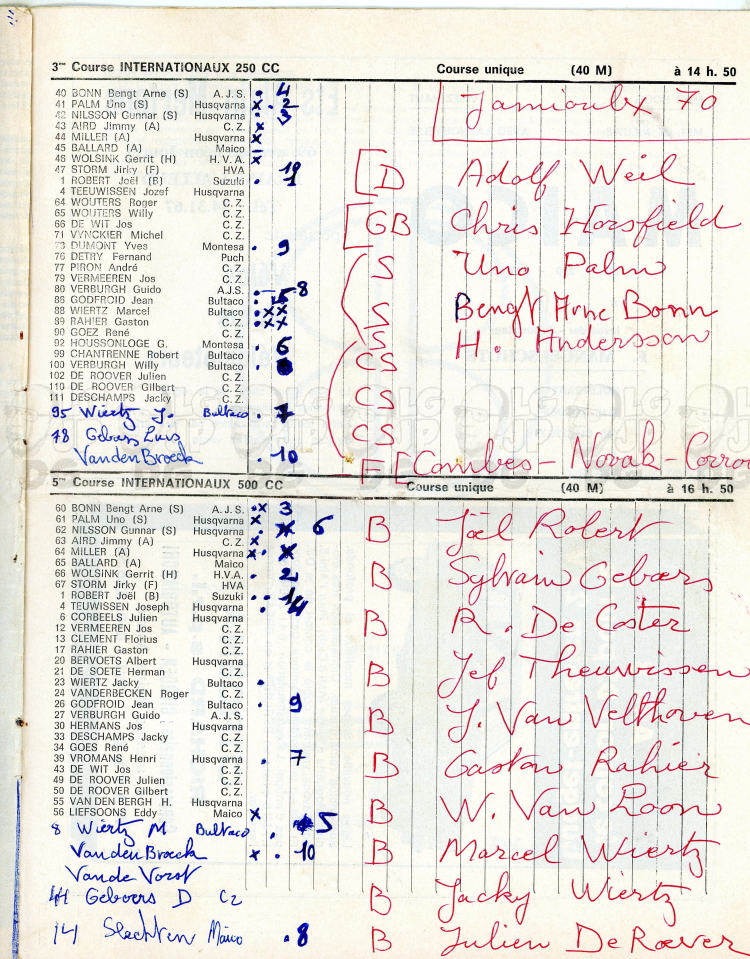 3me Course INTERNATIONAUX 250 CC Course unique (40 M) à 14 h. 50
Jamioulx 70
40 BONN Bengt Arne (S) A.J.S. . 4
41 PALM Uno (S) Husqvarna x . 2
42 NILSSON Gunnar (S) Husqvarna . 3
43 AIRD Jimmy (A) C.Z. x
44 MILLER (A) Husqvarna x
45 BALLARD (A) Maico –
46 WOLSINK Gerrit (H) H.V.A. x
47 STORM Jirky (F) HVA
1 ROBERT Joël (B) Suzuki . 1
4 TEEUWISSEN Jozef Husqvarna
64 WOUTERS Roger C.Z.
65 WOUTERS Willy C.Z.
66 DE WIT Jos C.Z.
71 VYNCKIER Michel C.Z.
73 DUMONT Yves Montesa . 9
76 DETRY Fernand Puch
77 PIRON André C.Z.
79 VERMEEREN Jos C.Z.
80 VERBURGH Guido A.J.S. . – 8
86 GODFROID Jean Bultaco . 5
88 WIERTZ Marcel Bultaco . x x
89 RAHIER Gaston C.Z. . x x
90 GOEZ René C.Z.
92 HOUSSONLOGE G. Montesa . 6
99 CHANTRENNE Robert Bultaco
100 VERBURGH Willy Bultaco .
102 DE ROOVER Julien C.Z.
110 DE ROOVER Gilbert C.Z.
111 DESCHAMPS Jacky C.Z.
95 Wiertz J. Bultaco . 7
78 Geboers Luis
VandenBroeck . 10
D Adolf Weil
GB Chris Horsfield
S Uno Palm
S Bengt Arne Bonn
S H. Andersson
CS
CS
CS
F [Combes – Novak –
5me Course INTERNATIONAUX 500 CC Course unique (40 M) à 16 h. 50
60 BONN Bengt Arne (S) A.J.S. . x 3
61 PALM Uno (S) Husqvarna x
62 NILSSON Gunnar (S) Husqvarna . 6
63 AIRD Jimmy (A) C.Z. x
64 MILLER (A) Husqvarna x .
65 BALLARD (A) Maico
66 WOLSINK Gerrit (H) H.V.A. . 2
67 STORM Jirky (F) HVA
1 ROBERT Joël (B) Suzuki . . 1
4 TEUWISSEN Joseph Husqvarna . 4
6 CORBEELS Julien Husqvarna
12 VERMEEREN Jos C.Z.
13 CLEMENT Florius C.Z.
17 RAHIER Gaston C.Z.
20 BERVOETS Albert Husqvarna
21 DE SOETE Herman C.Z.
23 WIERTZ Jacky Bultaco .
24 VANDERBECKEN Roger C.Z.
26 GODFROID Jean Bultaco . 9
27 VERBURGH Guido A.J.S.
30 HERMANS Jos Husqvarna
33 DESCHAMPS Jacky C.Z.
34 GOES René C.Z.
39 VROMANS Henri Husqvarna . 7
43 DE WIT Jos C.Z.
49 DE ROOVER Julien C.Z.
50 DE ROOVER Gilbert C.Z.
55 VAN DEN BERGH H. Husqvarna
56 LIEFSOENS Eddy Maico x
8 Wiertz M Bultaco . 5
VandenBroeck x . 10
Vande Vorst
44 Geboers D CZ
14 Slechten Maico . 8
B Joël Robert
B Sylvain Geboers
B R. De Coster
B Jef Theuwissen
B J. Van Velthoven
B Gaston Rahier
B W. Van Loon
B Marcel Wiertz
B Jacky Wiertz
B Julien De Roever